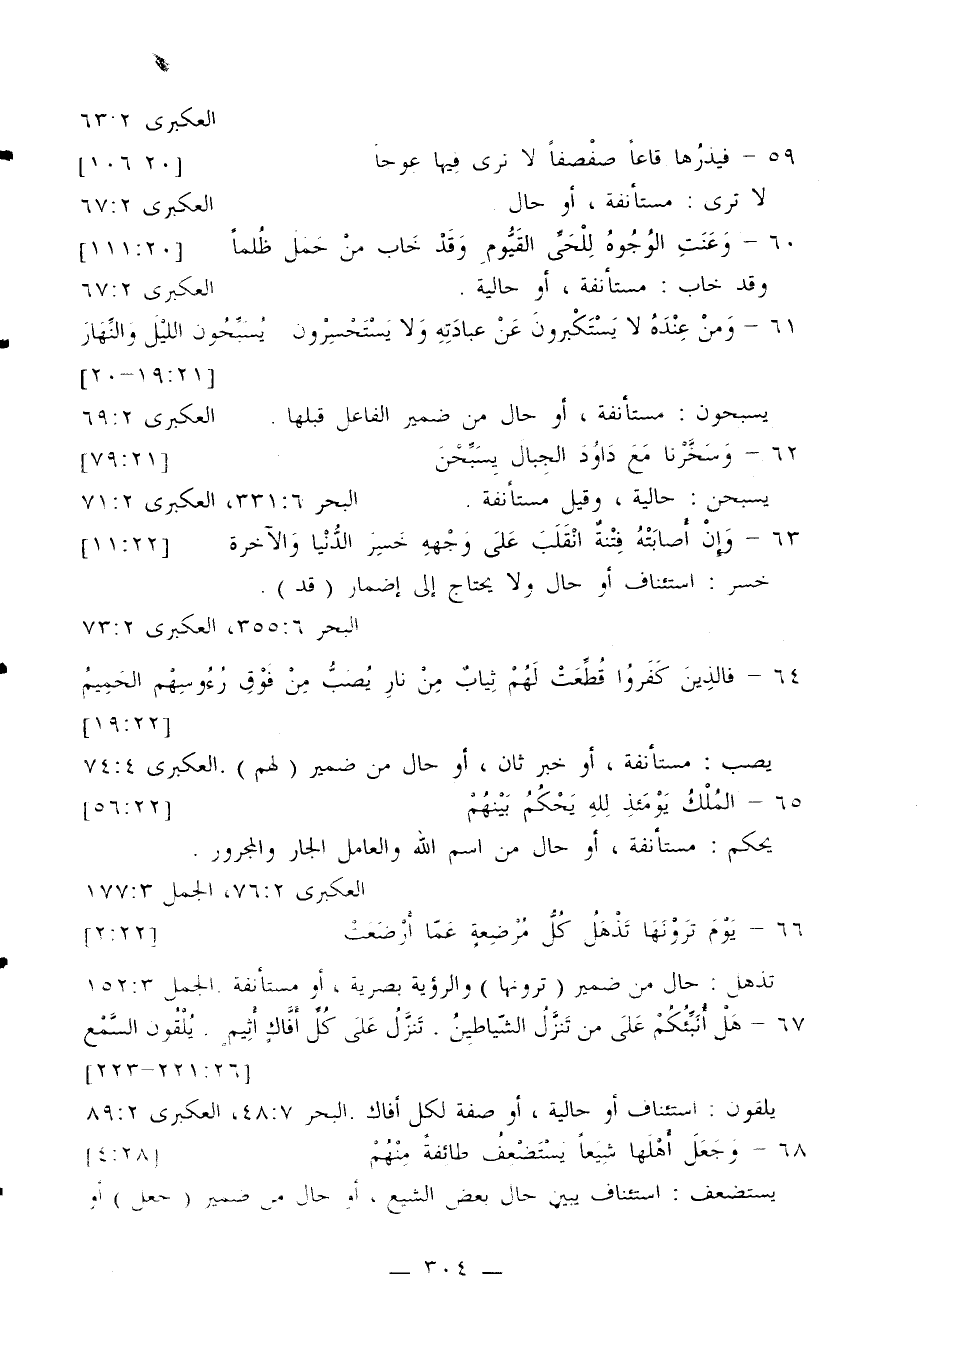 العكبرى ٢·٦٣
٥٩ – فيذرُها قاعاً صفْصفاً لا نرى فِيها عوجا [٢٠ ١٠٦]
لا ترى : مستأنفة ، أو حال العكبرى ٦٧:٢
٦٠ – وَعَنَتِ الوُجُوهُ لِلْحَىِّ القَيُّومِ وَقَدْ خَاب منْ حَمَل ظُلماً [١١١:٢٠]
وقد خاب : مستأنفة ، أو حالية . العكبرى ٦٧:٢
٦١ – وَمنْ عِنْدَهُ لا يَسْتَكْبرونَ عَنْ عبادَتِهِ وَلا يَسْتَحْسِرُون يُسَبِّحُون الليْلَ والنَّهَارَ
[١٩:٢١–٢٠]
يسبحون : مستأنفة ، أو حال من ضمير الفاعل قبلها . العكبرى ٦٩:٢
٦٢ – وَسَخَّرْنا مَعَ دَاوُدَ الجِبال يسَبِّحْنَ [٧٩:٢١]
يسبحن : حالية ، وقيل مستأنفة . البحر ٣٣١:٦، العكبرى ٧١:٢
٦٣ – وَإِنْ أصابَتْهُ فِتْنةٌ انْقَلَبَ عَلَى وَجْههِ خَسِرَ الدُّنْيا وَالآخرة [١١:٢٢]
خسر : استئناف أو حال ولا يحتاج إلى إضمار ( قد ) .
البحر ٣٥٥:٦، العكبرى ٧٣:٢
٦٤ – فالذِينَ كَفَروُا قُطِّعَتْ لَهُمْ ثِيابٌ مِنْ نارٍ يُصَبُّ مِنْ فَوْقِ رُءُوسِهْم الحَمِيمُ
[١٩:٢٢]
يصب : مستأنفة ، أو خبر ثان ، أو حال من ضمير ( لهم ) .العكبرى ٧٤:٤
٦٥ – المُلْكُ يَوْمَئذٍ لِلهِ يَحْكُمُ بَيْنهُمْ [٥٦:٢٢]
يحكم : مستأنفة ، أو حال من اسم الله والعامل الجار والمجرور .
العكبرى ٧٦:٢، الجمل ١٧٧:٣
٦٦ – يَوْمَ تَروْنَهَا تَذْهَلُ كُلُّ مُرْضِعةٍ عَمّا أرْضَعَتْ [٢:٢٢]
تذهل : حال من ضمير ( ترونها ) والرؤية بصرية ، أو مستأنفة .الجمل ١٥٢:٣
٦٧ – هَلْ أُنَبِّئكُمْ عَلَى من تَنزَّلُ الشّياطينُ . تَنزَّلُ عَلَى كُلِّ أفَّاكٍ أثِيمٍ . يُلْقُون السَّمْع
[٢٢١:٢٦–٢٢٣]
يلقون : استئناف أو حالية ، أو صفة لكل أفاك .البحر ٤٨:٧، العكبرى ٨٩:٢
٦٨ – وَجَعَلَ أهْلَها شيَعاً يَسْتَضْعِفُ طائفةً مِنْهُمْ [٤:٢٨]
يستضعف : استئناف يبين حال بعض الشيع ، أو حال من ضمير ( جعل ) أو
— ٣٠٤ —